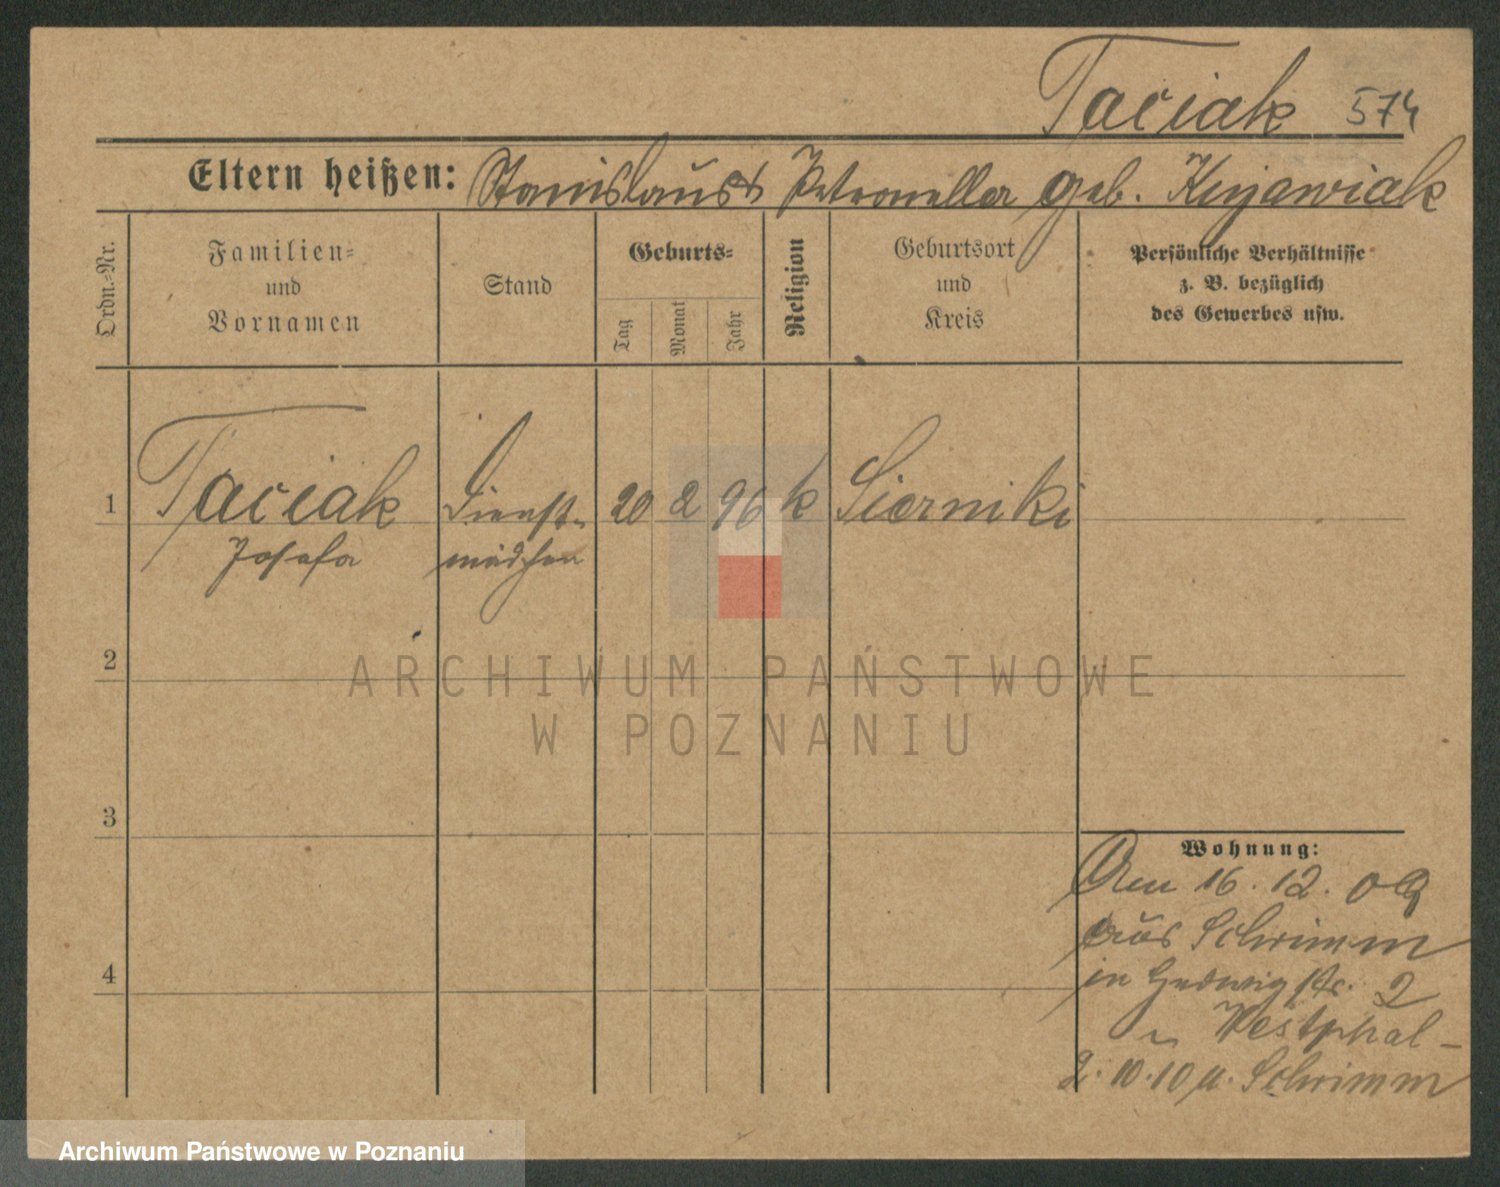 Taciak 574
Eltern heißen: Stanislaus & Petronella geb. Kujawiak
Ordn.=Nr.
Familien=
und
Vornamen
Stand
Geburts=
Tag
Monat
Jahr
Religion
Geburtsort
und
Kreis
Persönliche Verhältnisse
z. B. bezüglich
des Gewerbes usw.
1 Taciak Dienst- 20 2 96 k Sierniki
Josefa mädchen
2
3
4
Wohnung:
Am 16. 12. 09
aus Schrimm
in Hedwigstr. 2
Westphal -
2. 10. 10 n. Schrimm
ARCHIWUM PAŃSTWOWE
W POZNANIU
Archiwum Państwowe w Poznaniu